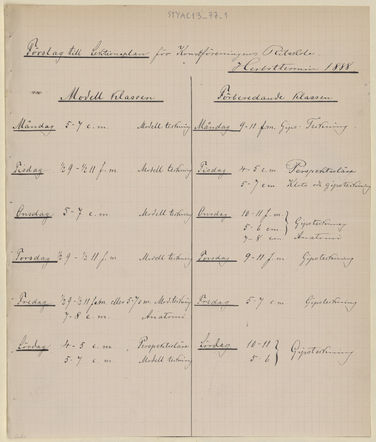 STYAC13_77_1
Förslag till Lektionsplan för Konstföreningens Ritskola
Hösttermin 1888
Modell klassen
Förberedande klassen
Måndag 5-7 e.m. Modell teckning
Tisdag ½9-½11 f.m. Modell teckning
Onsdag 5-7 e.m. Modell teckning
Torsdag ½9-½11 f.m. Modell teckning
Fredag ½9-½11 f.m. eller 5-7 e.m. Mod. teckning
7-8 e.m. Anatomi
Lördag 4-5 e.m. Perspektivlära
5-7 e.m. Modell teckning
Måndag 9-11 f.m. Gips-Teckning
Tisdag 4-5 e.m. Perspektivlära
5-7 e.m. och Gipsteckning
Onsdag 10-11 f.m.
5-6 e.m. } Gipsteckning
7-8 e.m. Anatomi
Torsdag 9-11 f.m. Gipsteckning
Fredag 5-7 e.m. Gipsteckning
Lördag 10-11
5-6 } Gipsteckning